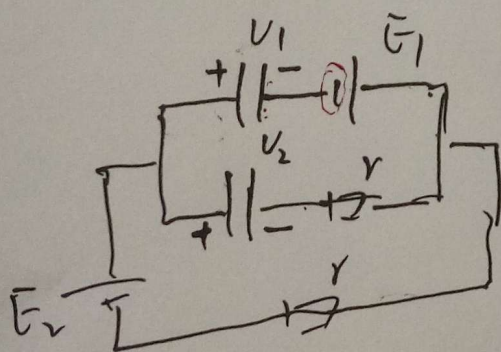 U1
E1
+
-
U2
r
+
-
r
E2